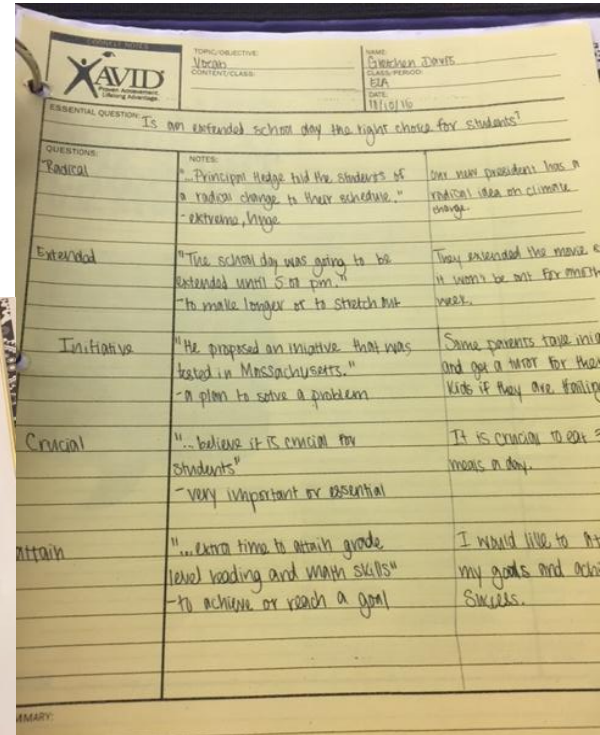 CORNELL NOTES
AVID
Proven Achievement.
Lifelong Advantage.
TOPIC/OBJECTIVE:
Vocab
CONTENT/CLASS:
NAME:
Gretchen Davis
CLASS/PERIOD:
ELA
DATE:
ESSENTIAL QUESTION: Is an extended school day the right choice for students?
QUESTIONS:
NOTES:
Radical
"...Principal Hedge told the students of
a radical change to their schedule."
- extreme, huge
our new president has a
radical idea on climate
change.
Extended
"The school day was going to be
extended until 5:00 pm."
-to make longer or to stretch out
They extended the movie
it won't be out for
week.
Initiative
"He proposed an iniative that was
tested in Massachusetts."
-a plan to solve a problem
Some parents take
and get a tutor for
kids if they are
Crucial
"... believe it is crucial for
students"
-very important or essential
It is crucial to eat 3
meals a day.
attain
"...extra time to attain grade
level reading and math skills"
-to achieve or reach a goal
I would like to
my goals and
success.
MMARY: